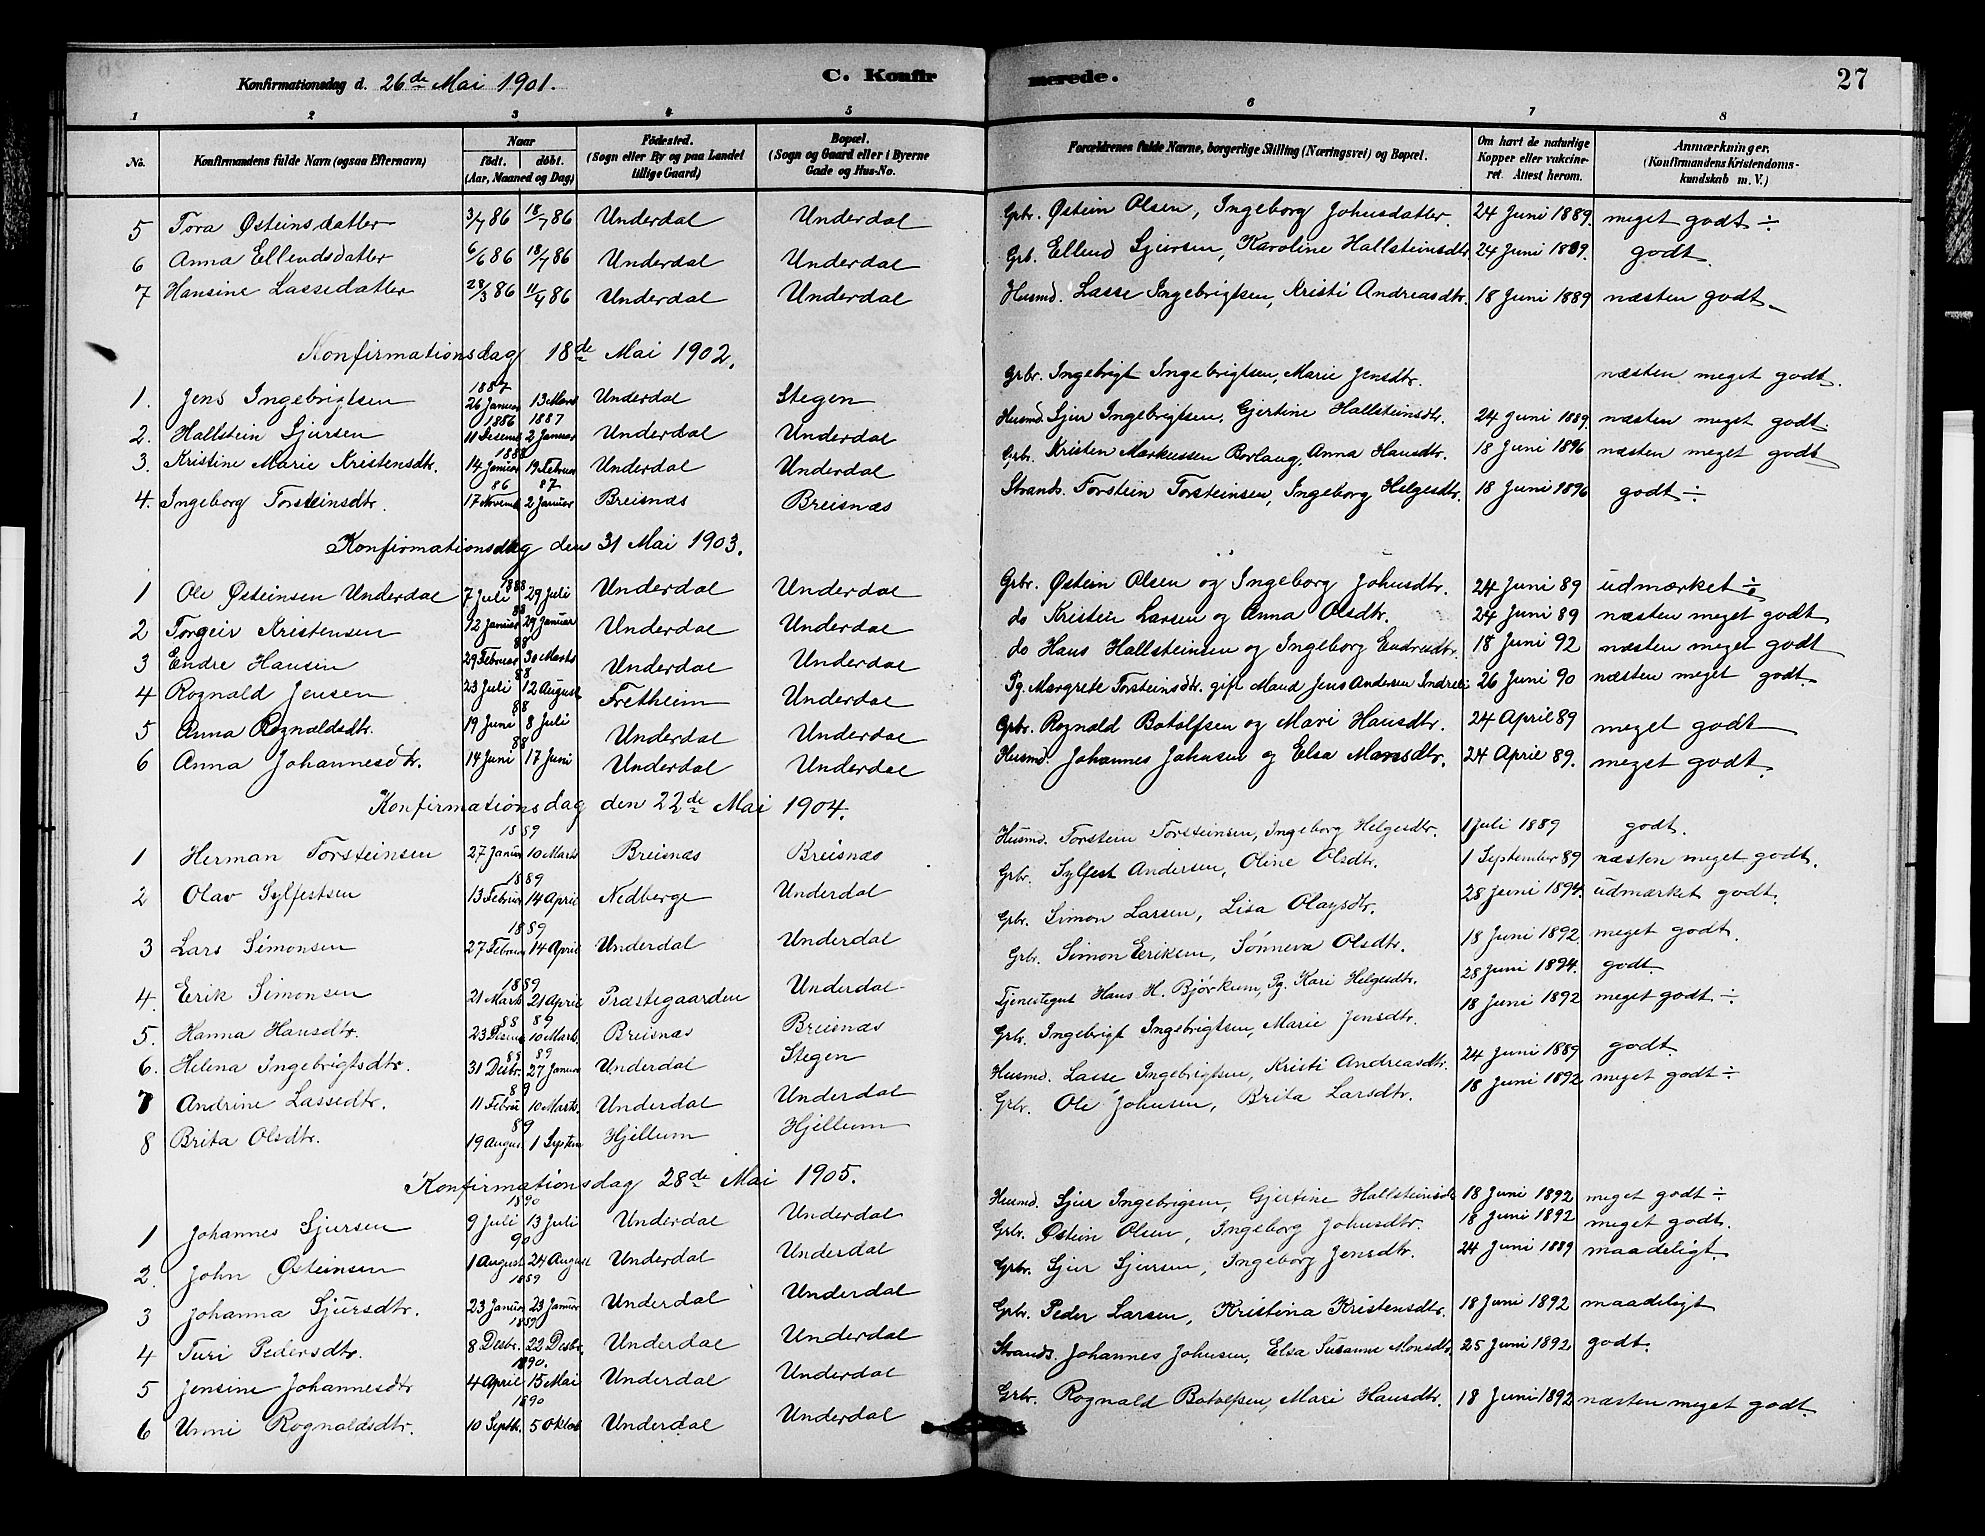 Konfirmationsdag d. 26de Mai 1901. C. Konfirmerede. 27
1 2 3 4 5 6 7 8
No. Konfirmandens fulde Navn (ogsaa Efternavn) Naar født. døbt. (Aar, Maaned og Dag) Fødested. (Sogn eller By og paa Landet tillige Gaard) Bopæl. (Sogn og Gaard eller i Byerne Gade og Hus-No. Forældrenes fulde Navne, borgerlige Stilling (Næringsvei) og Bopæl. Om havt de naturlige Kopper eller vakcineret. Attest herom. Anmærkninger, (Konfirmandens Kristendomskundskab m. V.)
5 Tora Østeinsdatter 3/7 86 18/7 86 Underdal Underdal Grbr. Østein Olsen, Ingeborg Johnsdatter 24 Juni 1889. meget godt ÷
6 Anna Ellendsdatter 6/6 86 18/7 86 Underdal Underdal Grb. Ellend Sjursen, Karoline Hallsteinsdtr 24 Juni 1889. godt.
7 Hansine Lassedatter 28/3 86 11/4 86 Underdal Underdal Husmd. Lasse Ingebrigtsen, Kristi Andreasdtr. 18 Juni 1889 næsten godt
Konfirmationsdag 18de Mai 1902.
1. Jens Ingebrigtsen 1887 26 Januar 13 Marts Underdal Stegen Grbr. Ingebrigt Ingebrigtsen, Marie Jensdtr. næsten meget godt.
2. Hallstein Sjursen 1886 11 Desemb 1887 2 Januar Underdal Underdal Husmd. Sjur Ingebrigtsen, Gjertine Hallsteinsdtr. 24 Juni 1889. næsten meget godt
3. Kristine Marie Kristensdtr. 1888 14 Januar 19 Februar Underdal Underdal Grb. Kristen Markussen Borlaug, Anna Hansdtr. 18 Juni 1896 næsten meget godt
4. Ingeborg Torsteinsdtr. 86 17 Novemb 87 2 Januar Breisnæs Breisnæs Strands. Torstein Torsteinsen, Ingeborg Helgesdtr. 18 Juni 1896 godt ÷
Konfirmationsdag den 31 Mai 1903.
1 Ole Østeinsen Underdal 1888 7 Juli 29 Juli Underdal Underdal Grbr. Østein Olsen og Ingeborg Johnsdtr. 24 Juni 89 udmærket ÷
2 Torgeir Kristensen 88 12 Januar 29 Januar Underdal Underdal do Kristen Larsen og Anna Olsdtr. 24 Juni 89 næsten meget godt
3 Endre Hansen 88 29 Februar 30 Marts Underdal Underdal do Hans Hallsteinsen og Ingeborg Endresdtr. 18 Juni 92 næsten meget godt
4 Rognald Jensen 88 23 Juli 12 August Fretheim Underdal Pg. Margrete Torsteinsdtr. gift Mand Jens Andersen 26 Juni 90 næsten meget godt
5 Anna Rognaldsdtr. 88 19 Juni 8 Juli Underdal Underdal Grbr. Rognald Botolfsen og Mari Hansdtr. 24 April 89 meget godt
6 Anna Johannesdtr. 88 14 Juni 17 Juni Underdal Underdal Husmd. Johannes Johnsen og Elsa Monsdtr. 24 April 89. meget godt
Konfirmationsdag den 22de Mai 1904.
1 Herman Torsteinsen 1889 27 Januar 10 Marts Breisnæs Breisnæs Husmd. Torstein Torsteinsen, Ingeborg Helgesdtr. 1 Juli 1889 godt.
2 Olav Sylfestsen 1889 13 Februar 14 April Nedberge Underdal Grbr. Sylfest Andersen, Oline Olsdtr. 1 September 89 næsten meget godt.
3 Lars Simonsen 1889 27 Februar 14 April Underdal Underdal Grbr. Simon Larsen, Lisa Olavsdtr. 28 Juni 1894. udmærket godt.
4. Eerik Simonsen 1889 21 Marts 21 April Præstegaarden Underdal Grb. Simon Eeriksen, Sønneva Olsdtr. 18 Juni 1892 meget godt.
5. Hanna Hansdtr. 88 23 Desemb 89 10 Marts. Breisnæs Breisnæs Tjenestegut Hans H. Bjørkum, Pg. Kari Helgesdtr. 28 Juni 1894. godt
6. Helena Ingebrigtsdtr. 88 31 Desbr. 89 27 Januar Underdal Stegen Grbr. Ingebrigt Ingebrigtsen, Marie Jensdtr. 18 Juni 1892 meget godt ÷
7 Andrine Lassedtr. 89 11 Februar 10 Marts. Underdal Underdal Husmd. Lasse Ingebrigtsen, Kristi Andreasdtr. 24 Juni 1889 godt.
8 Brita Olsdtr. 89 19 August 1 Septem Hjellum Hjellum Grbr. Ole Johnsen, Brita Larsdtr. 18 Juni 1892 meget godt ÷
Konfirmationsdag 28de Mai 1905.
1 Johannes Sjursen 1890 9 Juli 13 Juli Underdal Underdal Husmd. Sjur Ingebrigsen, Gjertine Hallsteinsdtr 18 Juni 1892 meget godt ÷
2. John Østeinsen 90 1 August 24 August Underdal Underdal Grbr. Østein Olsen, Ingeborg Johnsdtr. 18 Juni 1892 meget godt.
3 Johanna Sjursdtr. 1889 23 Januar 23 Januar Underdal Underdal Grbr. Sjur Sjursen, Ingeborg Jensdtr. 24 Juni 1889 maadeligt
4 Turi Pedersdtr. 1889 8 Desbr. 22 Desbr. Underdal Underdal Grbr. Peder Larsen, Kristina Kristensdtr. 18 Juni 1892 maadeligt
5 Jensine Johannesdtr 1890. 4 April 15 Mai Underdal Underdal Strands. Johannes Johnsen, Elsa Susanne Monsdtr. 25 Juni 1892 godt.
6 Unni Rognaldsdtr. 1890 10 Septbr. 5 Oktob Underdal Underdal Grbr. Rognald Botolfsen, Mari Hansdtr. 18 Juni 1892 næsten meget godt.